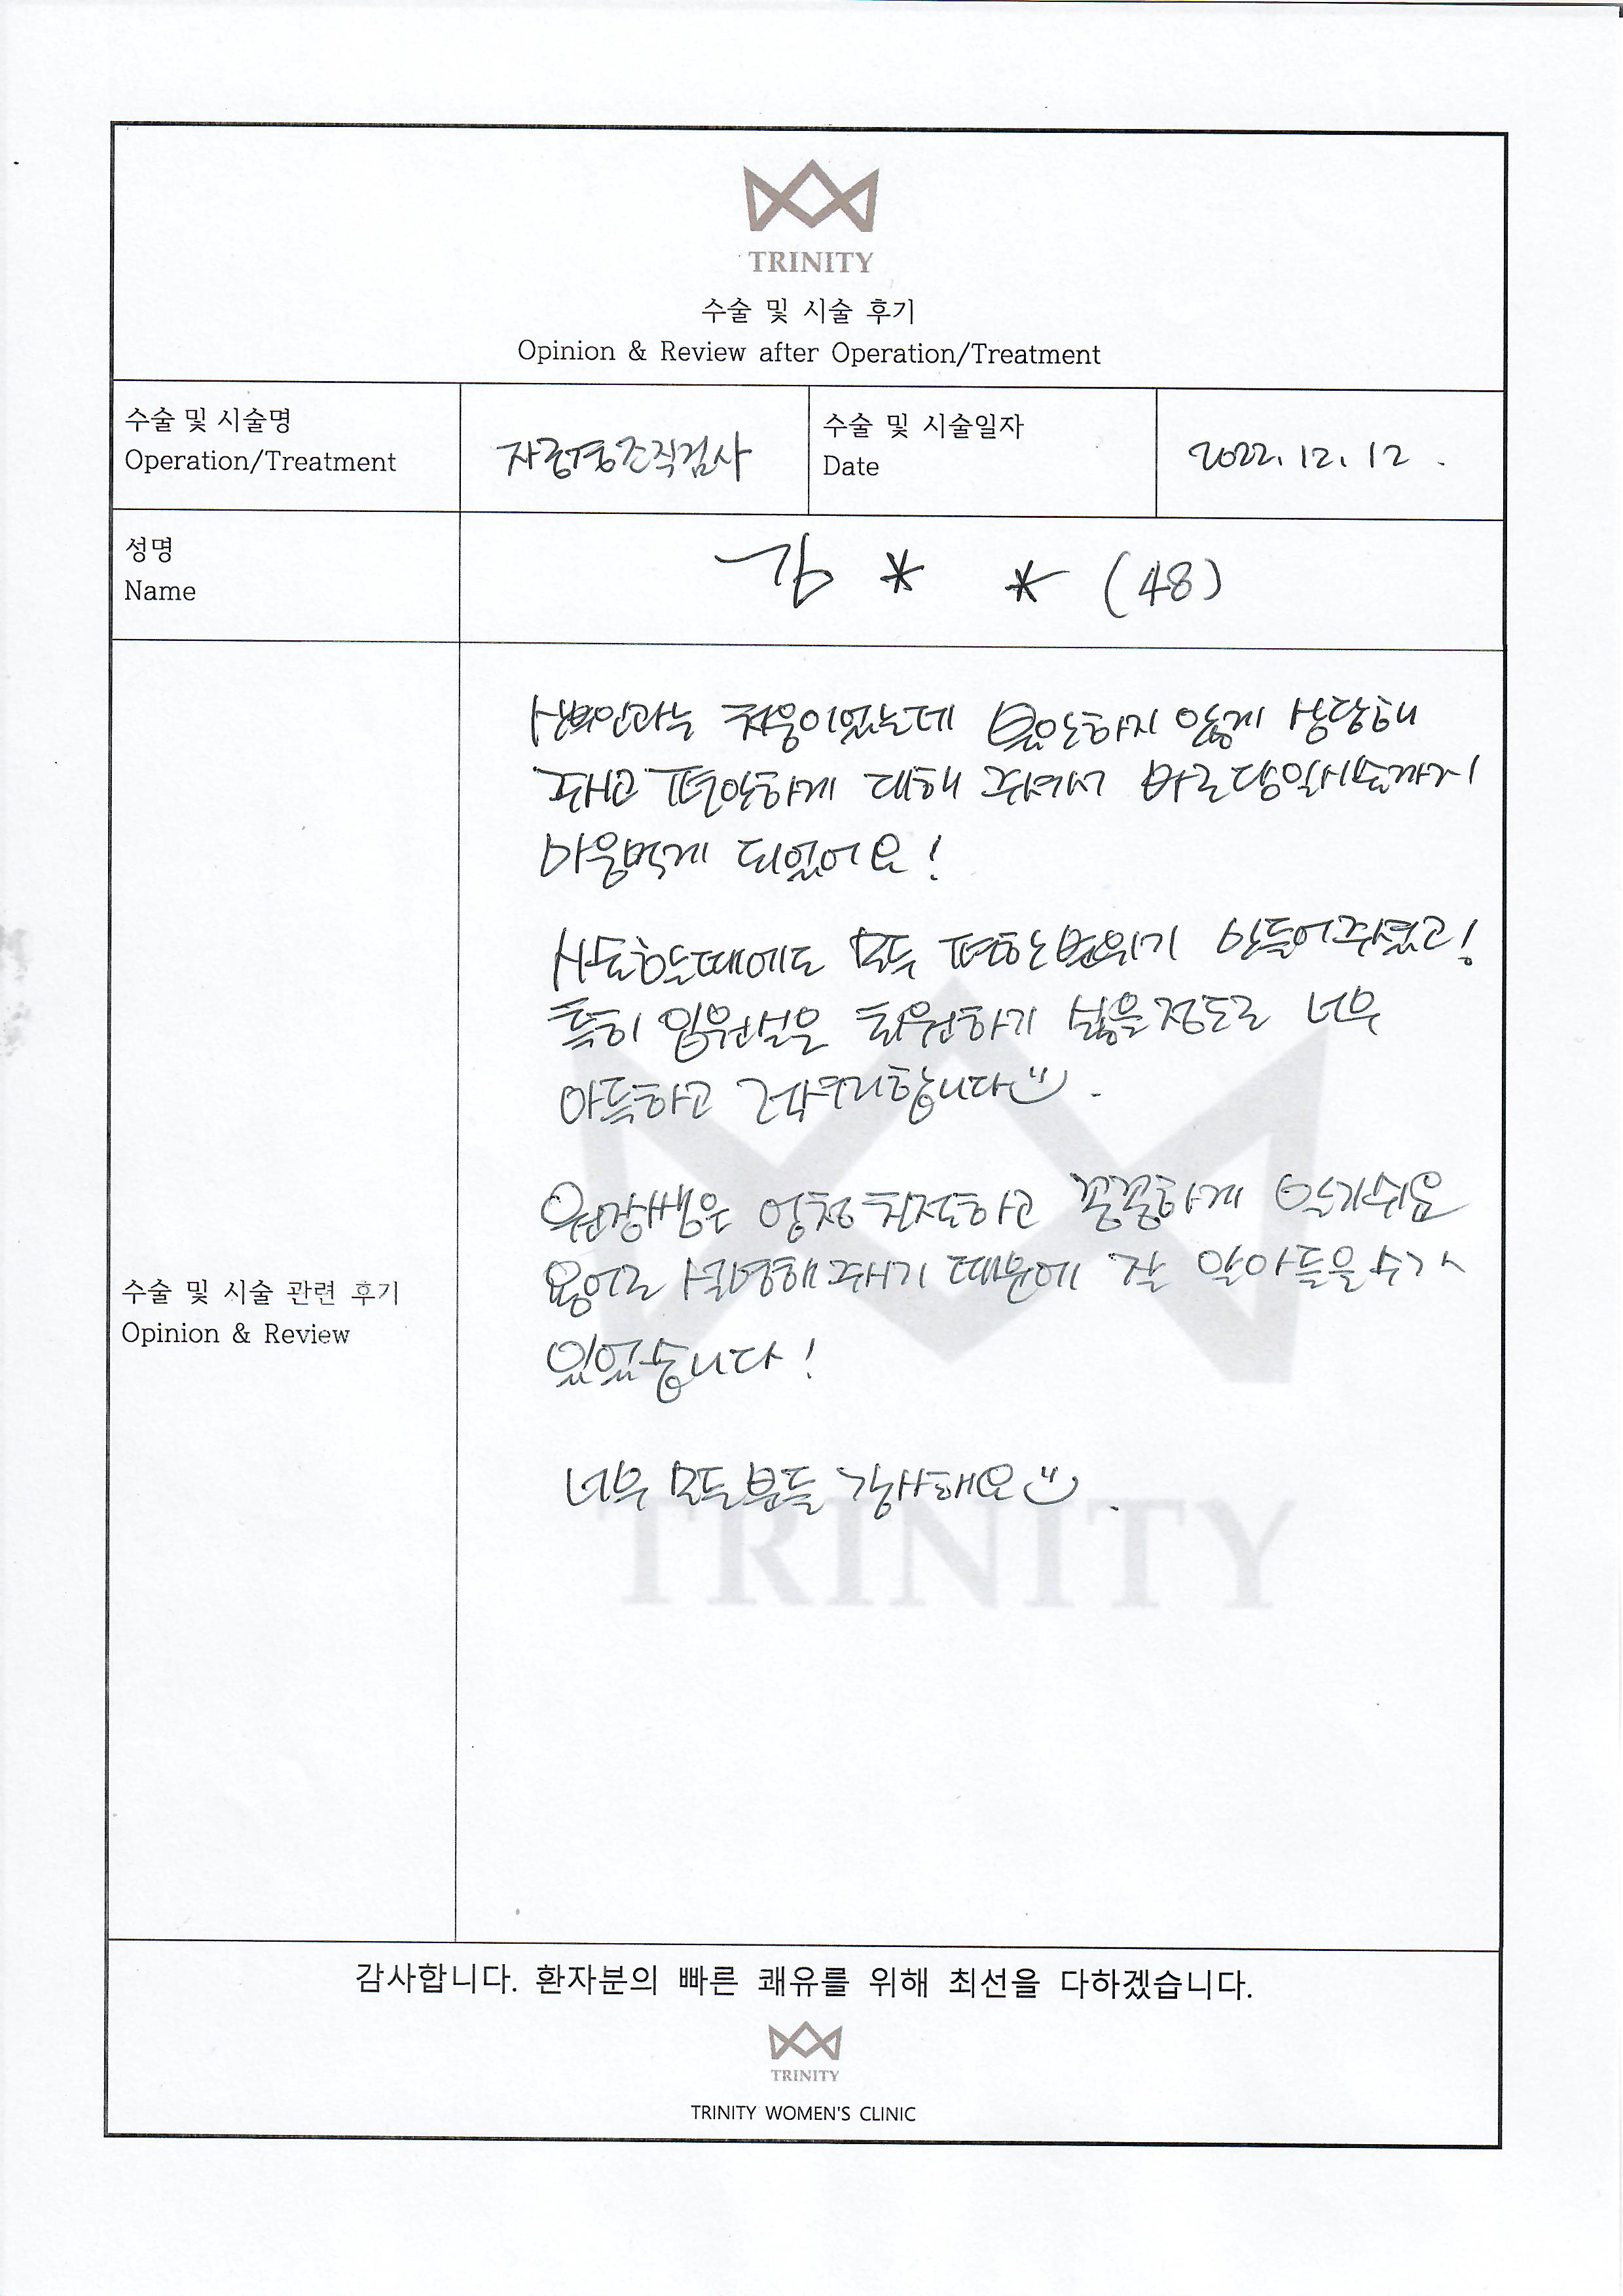 TRINITY
수술 및 시술 후기
Opinion & Review after Operation/Treatment
수술 및 시술명
Operation/Treatment
자궁경조직검사
수술 및 시술일자
Date
2022. 12. 12.
성명
Name
김 * * (48)
산부인과는 처음이었는데 불안하지 않게 상담해
주시고 편안하게 대해 주셔서 바로 당일시술까지
마음먹게 되었어요!
시술하는때에도 모두 편한 분위기 만들어주셨고!
특히 입원실은 퇴원하기 싫을정도로 너무
아득하고 럭셔리합니다
원장쌤은 엄청 친절하고 꼼꼼하게 알기쉬운
용어로 설명해 주시기 때문에 잘 알아들을 수가
있었습니다!
너무 모든분들 감사해요
수술 및 시술 관련 후기
Opinion & Review
TRINITY
감사합니다. 환자분의 빠른 쾌유를 위해 최선을 다하겠습니다.
TRINITY
TRINITY WOMEN'S CLINIC